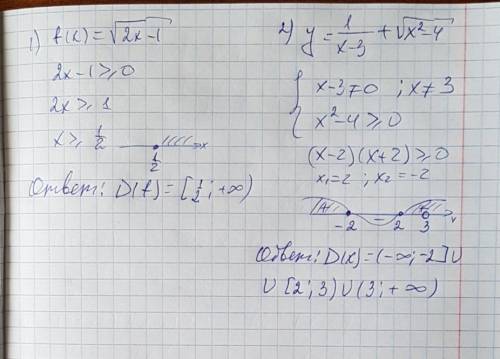 1) f(x)=√2x-1
2x-1⩾0
2x⩾1
x⩾ 1/2
x
1/2
Ответ: D(f)=[1/2; +∞)
2) y= 1/x-3 + √x²-4
{ x-3≠0 ; x≠3
x²-4⩾0
(x-2)(x+2)⩾0
x₁=2 ; x₂=-2
+ - +
-2 2 3
Ответ: D(x)=(-∞;-2]∪
∪ [2; 3)∪(3; +∞)